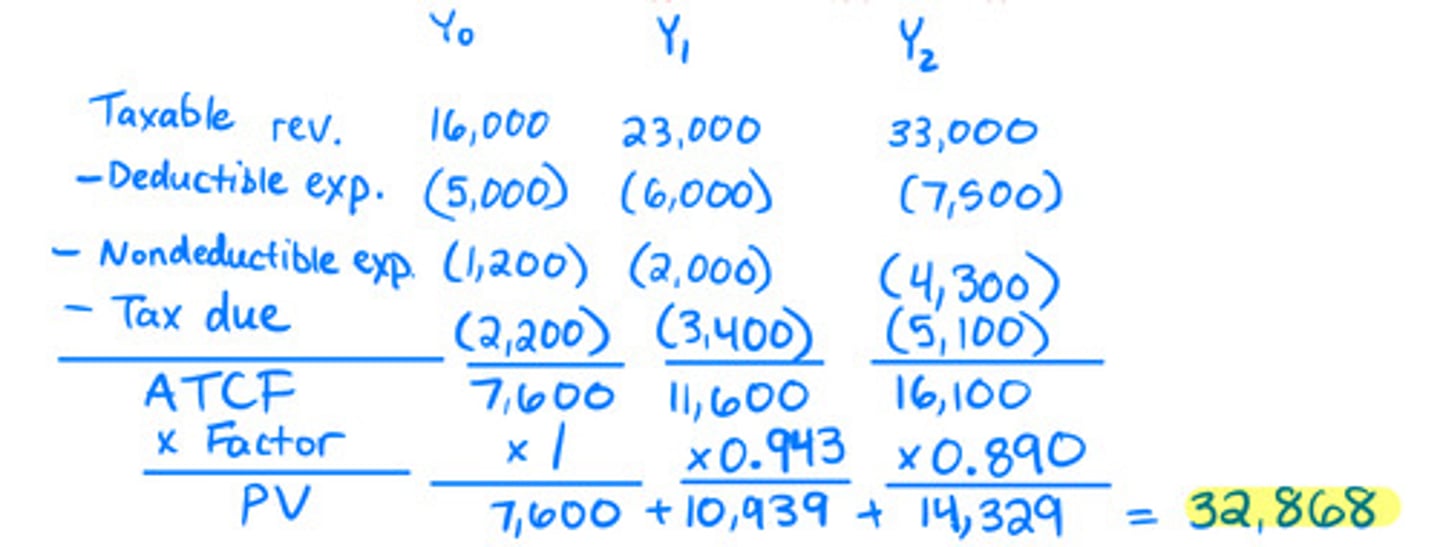 Y0 Y1 Y2
Taxable rev. 16,000 23,000 33,000
-Deductible exp. (5,000) (6,000) (7,500)
- Nondeductible exp. (1,200) (2,000) (4,300)
- Tax due (2,200) (3,400) (5,100)
ATCF 7,600 11,600 16,100
x Factor x 1 x0.943 x0.890
PV 7,600 + 10,939 + 14,329 = 32,868